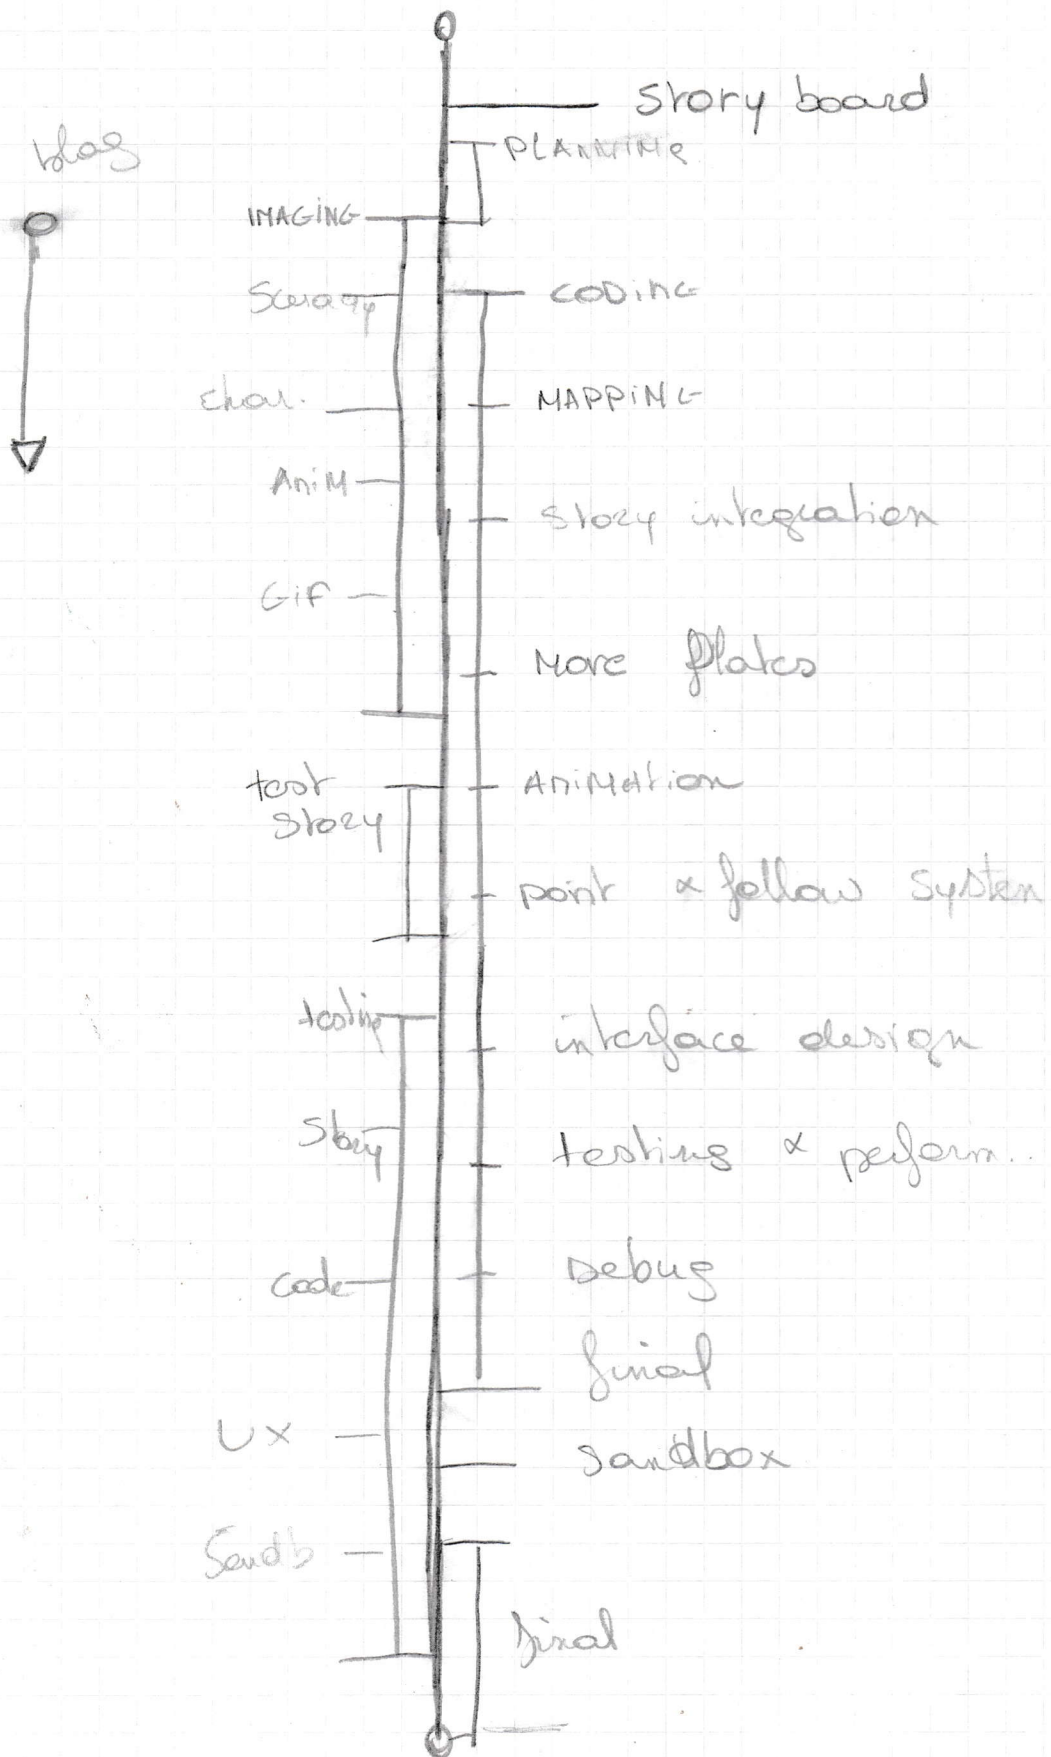 story board
blog
PLANNING
IMAGING
CODING
char.
MAPPING
ANIM
story integration
GIF
MORE plates
test
story
ANIMATION
point & follow system
testing
interface design
story
testing & perform..
code
Debug
final
UX
sandbox
Sandb
final